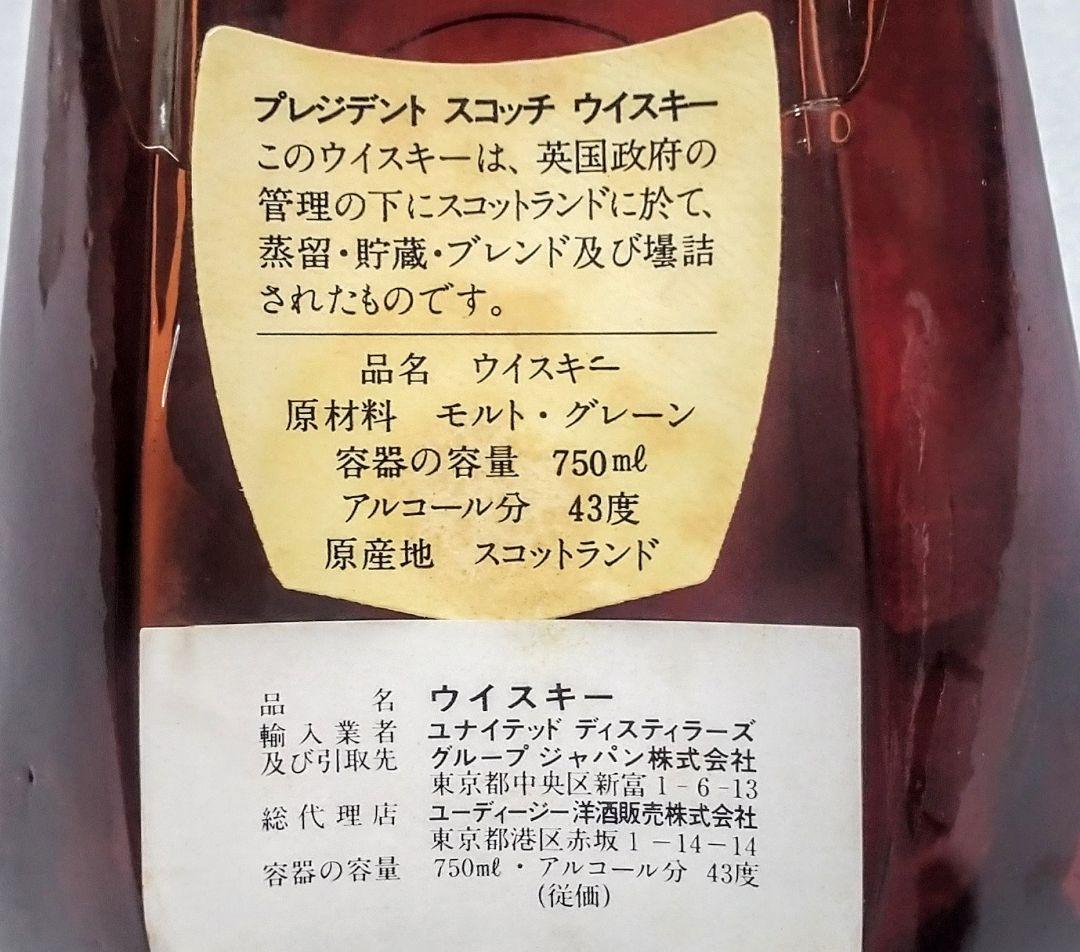 プレジデント スコッチ ウイスキー
このウイスキーは、英国政府の
管理の下にスコットランドに於て、
蒸留・貯蔵・ブレンド及び壜詰
されたものです。
品名 ウイスキー
原材料 モルト・グレーン
容器の容量 750㎖
アルコール分 43度
原産地 スコットランド
品名 ウイスキー
輸入業者 ユナイテッド ディスティラーズ
及び引取先 グループ ジャパン株式会社
東京都中央区新富1-6-13
総代理店 ユーディージー洋酒販売株式会社
東京都港区赤坂1-14-14
容器の容量 750㎖・アルコール分 43度
(従価)